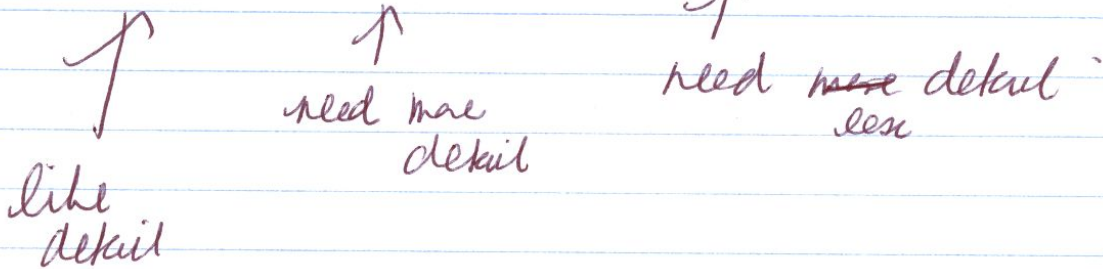 like
detail
need more
detail
need more detail
less